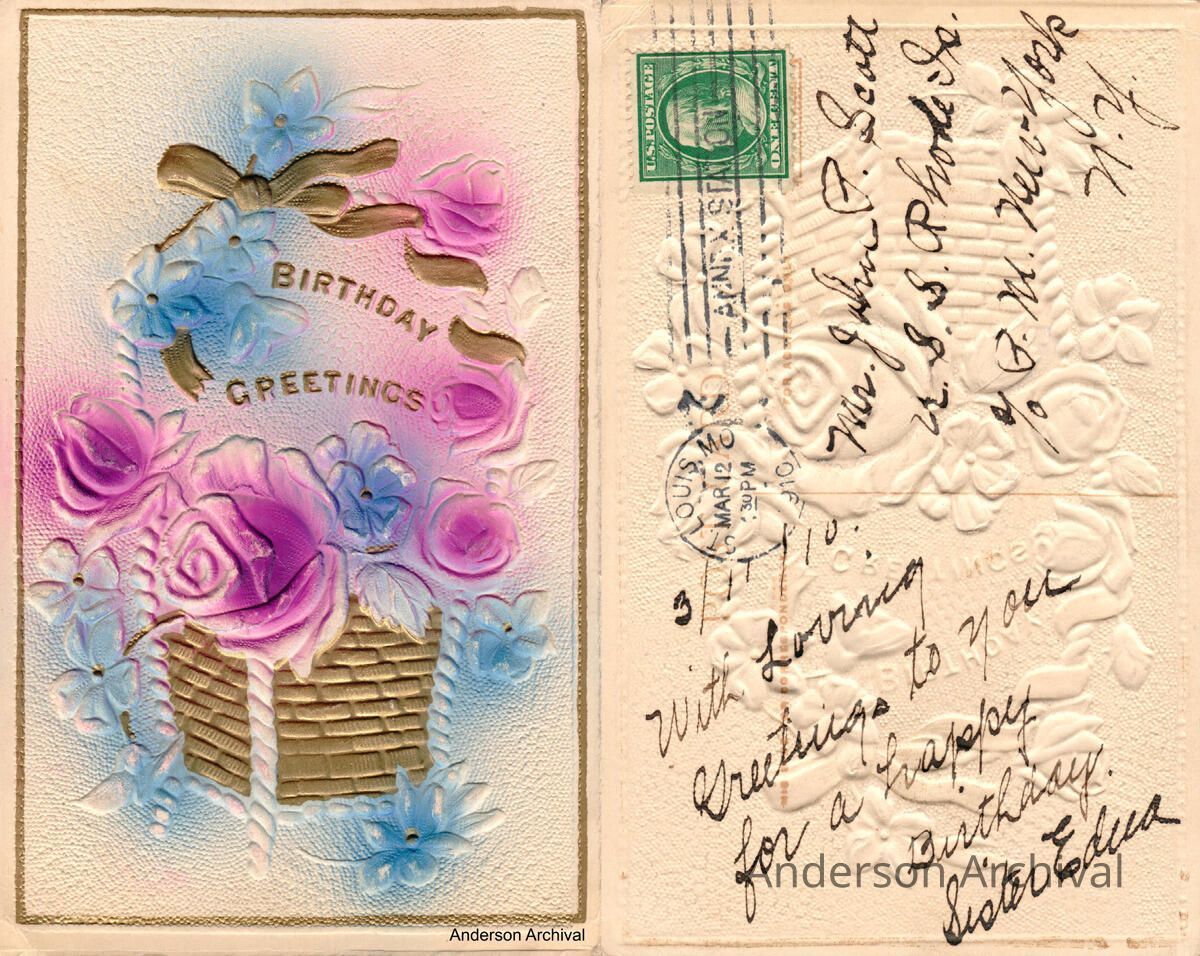 BIRTHDAY
GREETINGS
Anderson Archival
U.S. POSTAGE
ONE CENT
ANNEX STATION
ST LOUIS MO
MAR 12
30 PM
1910
Mr. John P. Scott
U. S. S. Rhode Is.
℅ P. M. New York
N. Y.
3/11/10.
With Loving
Greetings to you
for a happy
Birthday.
Sister Edna
Anderson Archival